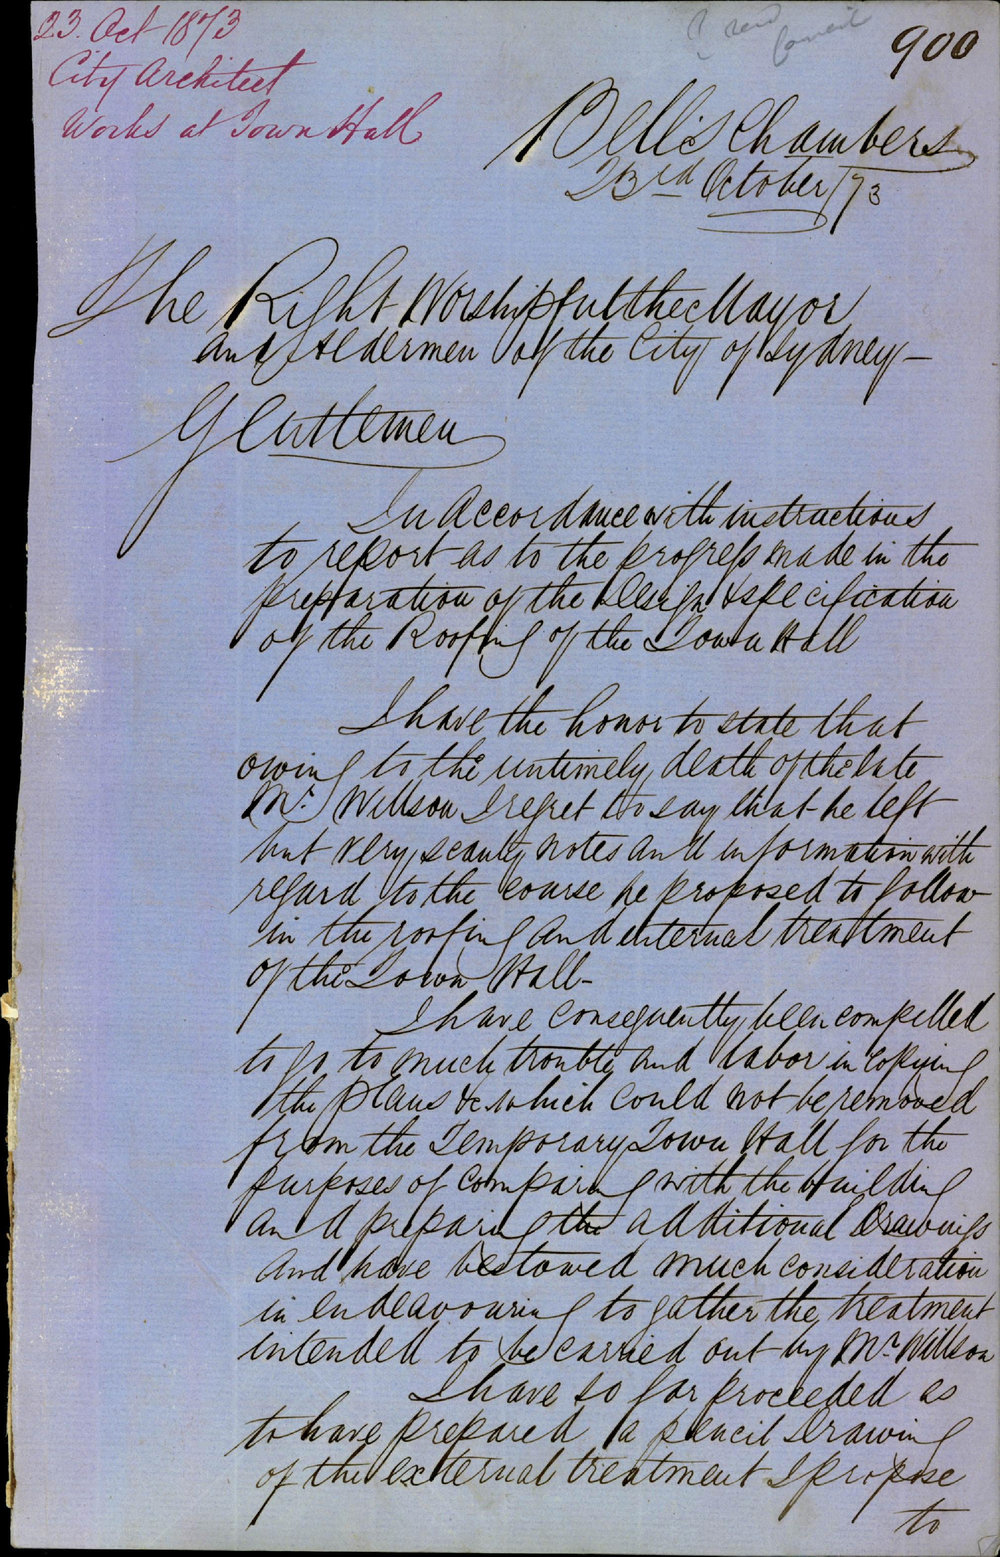 23. Oct 1873
City Architect
Works at Town Hall
900
Bell's Chambers
23rd October/73
The Right Worshipful the Mayor
and Aldermen of the City of Sydney—
Gentlemen
In accordance with instructions
to report as to the progress made in the
preparation of the Design & specification
of the Roofing of the Town Hall
I have the honor to state that
owing to the untimely death of the late
Mr. Willson I regret to say that he left
but very scanty notes and information with
regard to the course he proposed to follow
in the roofing and internal treatment
of the Town Hall-
I have consequently been compelled
to go to much trouble and labor in copying
the plans &c which could not be removed
from the Temporary Town Hall for the
purposes of comparing with the building
and preparing the additional Drawings
and have bestowed much consideration
in endeavouring to gather the treatment
intended to be carried out by Mr Willson
I have so far proceeded as
to have prepared a pencil Drawing
of the external treatment I propose
to